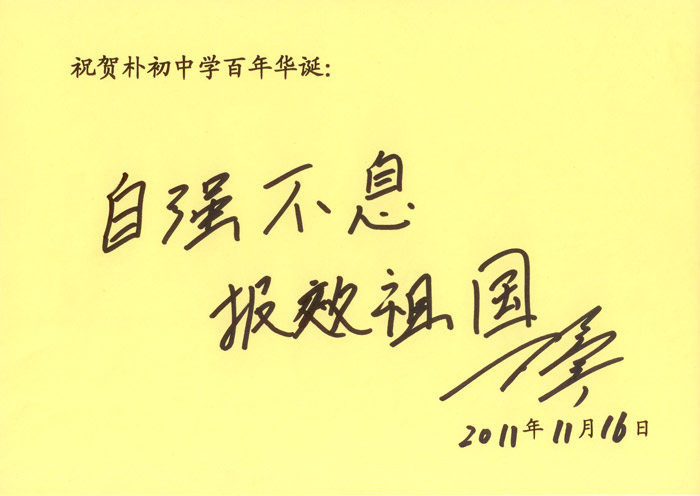 祝贺朴初中学百年华诞:
自强不息
报效祖国
2011年11月16日